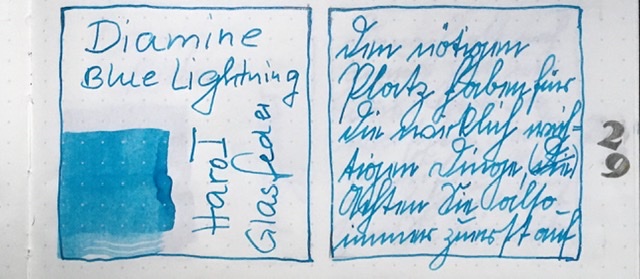 Diamine
Blue Lightning
Harol
Glasfeder
den nötigen
Platz haben für
die wirklich wich-
tigen Dinge, (die)
Achten Sie also
immer zuerst auf
29